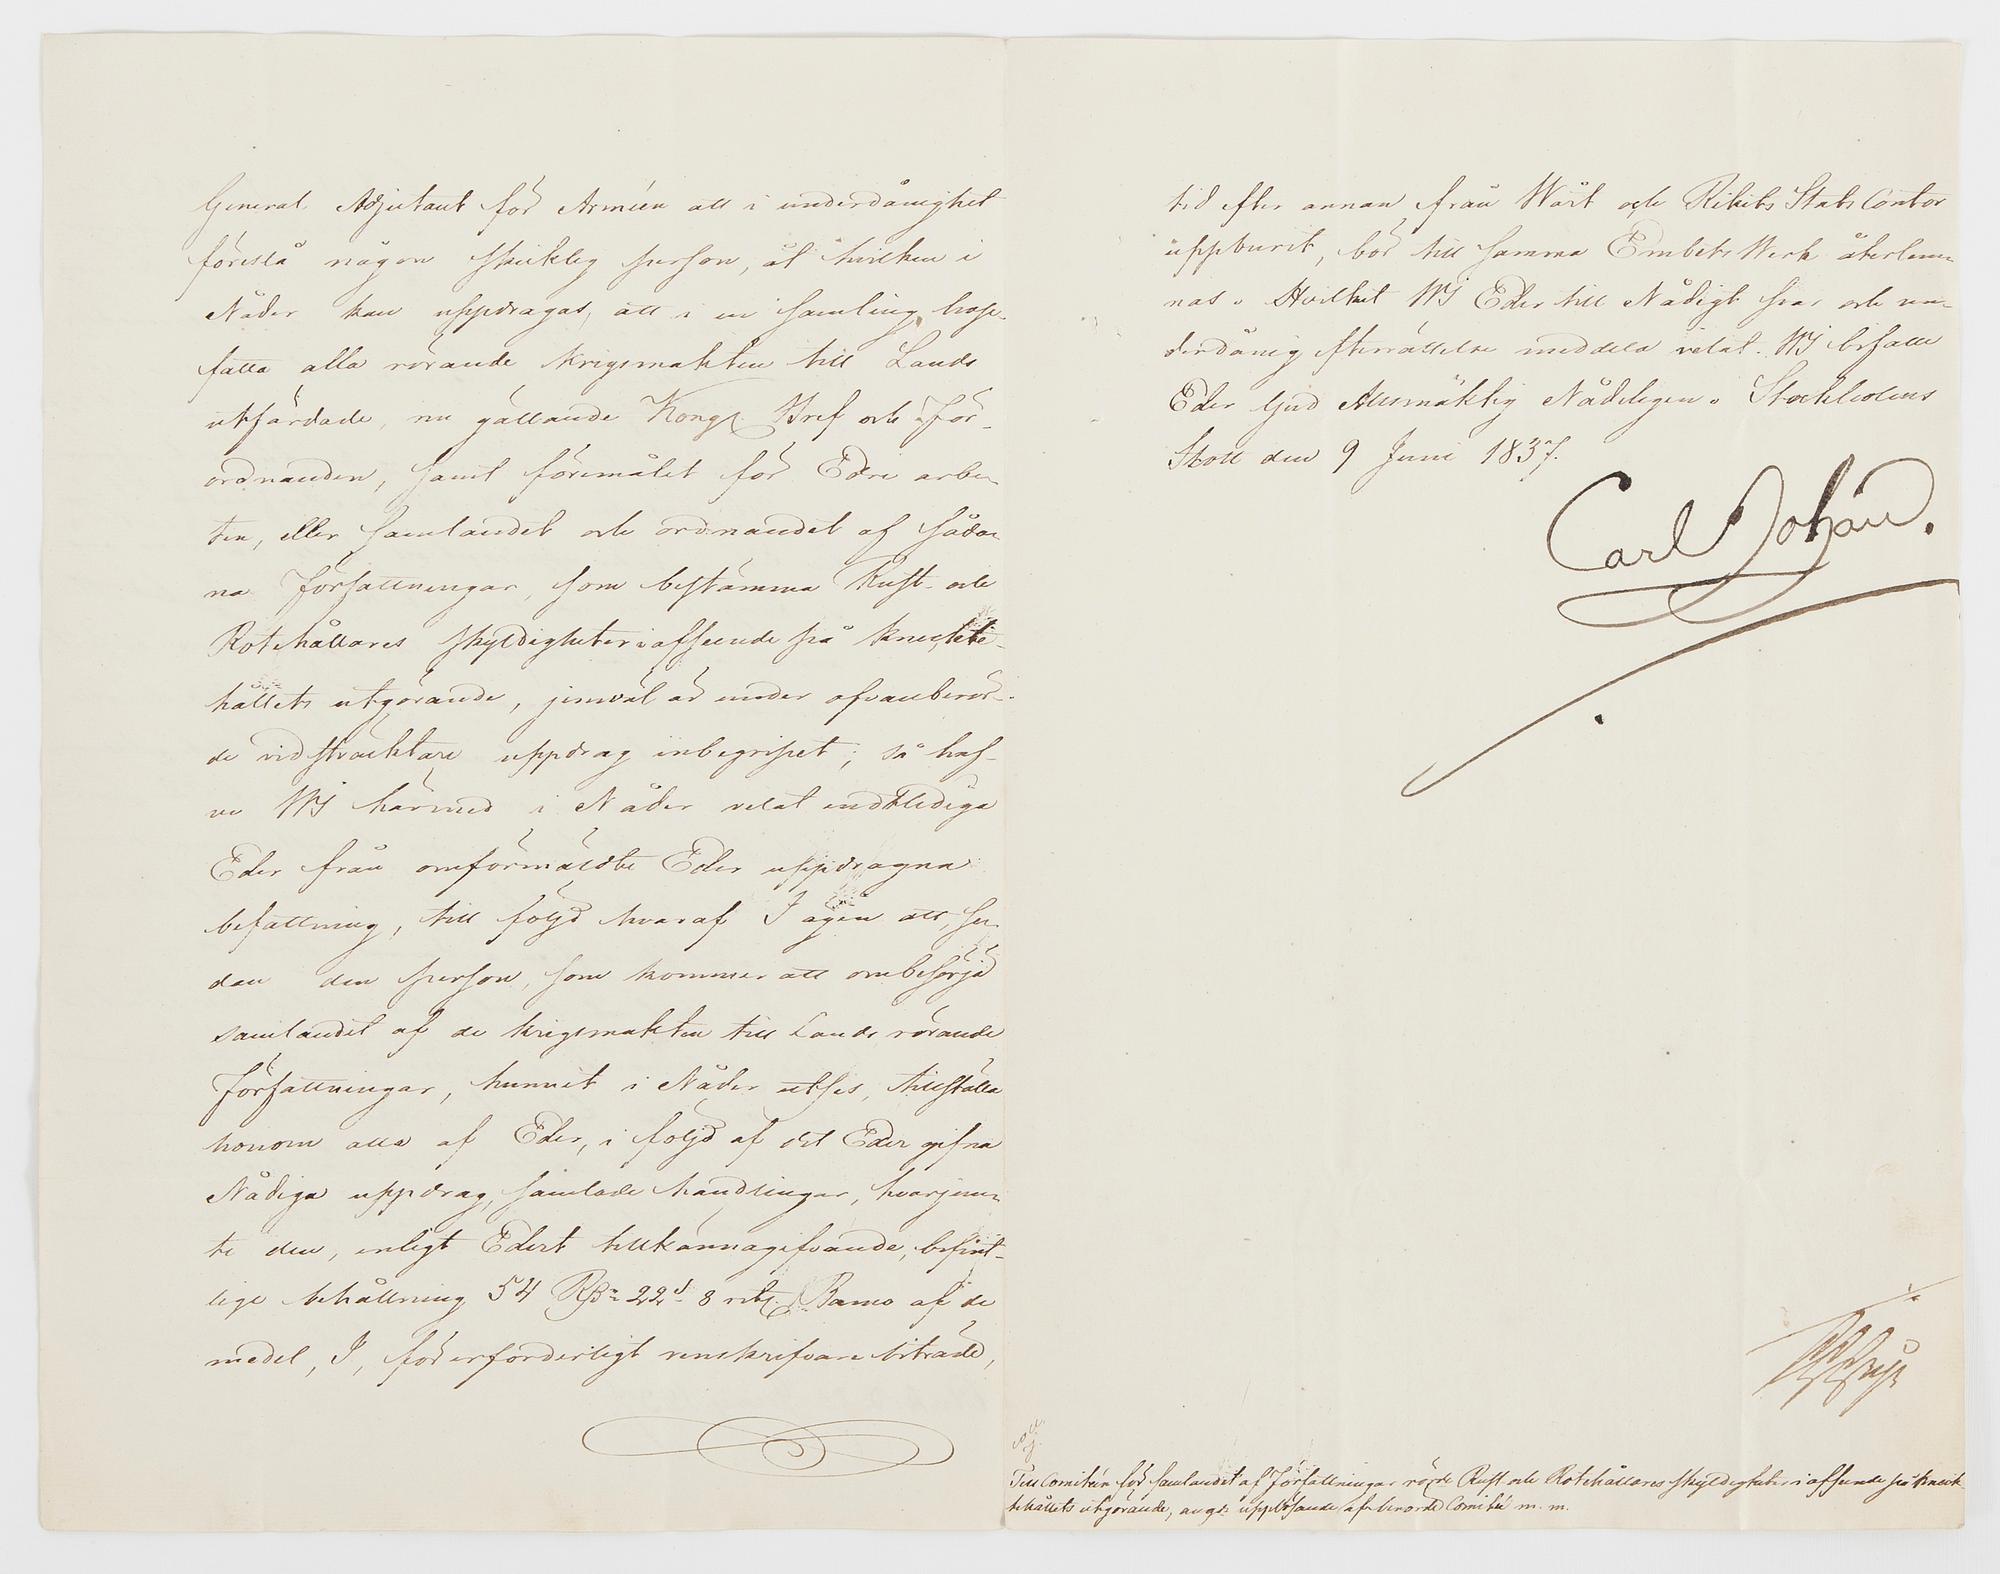 General Adjutant för Arméen att i underdånighet
föreslå någon skicklig person, åt hvilken i
Nåder kan uppdragas, att i en samling hop-
fatta alla rörande krigsmakten till Lands
utfärdade, nu gällande Kongl. Bref och För-
ordnanden, samt föremålet för Edre arbe-
ten, eller samlandet och ordnandet af såda-
na författningar, som bestämma Rust- och
Rotehållares skyldigheter i afseende på knekte-
hållets utgörande, jemväl är under ofvanberör-
de vidsträcktare uppdrag inbegripet; så haf-
ve WJ härmed i Nåder velat endtlediga
Eder från omförmäldte Eder uppdragna
befattning, till följd hvaraf I ägen att, se-
dan den person, som kommer att ombesörja
samlandet af de krigsmakten till Lands rörande
författningar, hunnit i Nåder utses, tillställa
honom alla af Eder, i följd af det Eder gifna
Nådiga uppdrag, samlade handlingar, hvarjem-
te den, enligt Edert tillkännagifvande, befint-
lige behållning 54 Rdr 22 s 8 rst. Banco af de
medel, I, för erforderligt renskrifvare biträde,
tid efter annan från Wårt och Rikets Stats Contor
uppburit, bör till samma Embets Werk återlem-
nas. Hvilket WJ Eder till Nådigt svar och un-
derdånig efterrättelse meddela velat. WJ befalle
Eder Gud Allsmäktig Nådeligen. Stockholms
Slott den 9 Juni 1837.
Carl Johan.
Till Comitéen för samlandet af Författningar rörde Rust och Rotehållares skyldigheter i afseende på knek-
tehållets utgörande, angde upplösande af berörde Comité m. m.